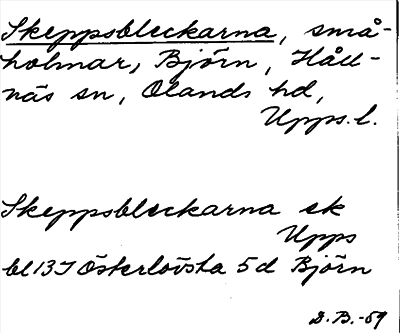 Skeppsbleckarna, små-
holmar, Björn, Håll-
näs sn, Olands hd,
Upps. l.
Skeppsbleckarna ek
Upps
bl 13I Österlövsta 5d Björn
D.B.-59